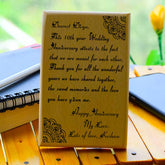 Dearest Divya,
This 10th year Wedding
Anniversary attests to the fact
that we are meant for each other.
Thank you for all the wonderful
years we have shared together,
the sweet memories and the love
you have given me.
Happy Anniversary
My Love.
Lots of love,